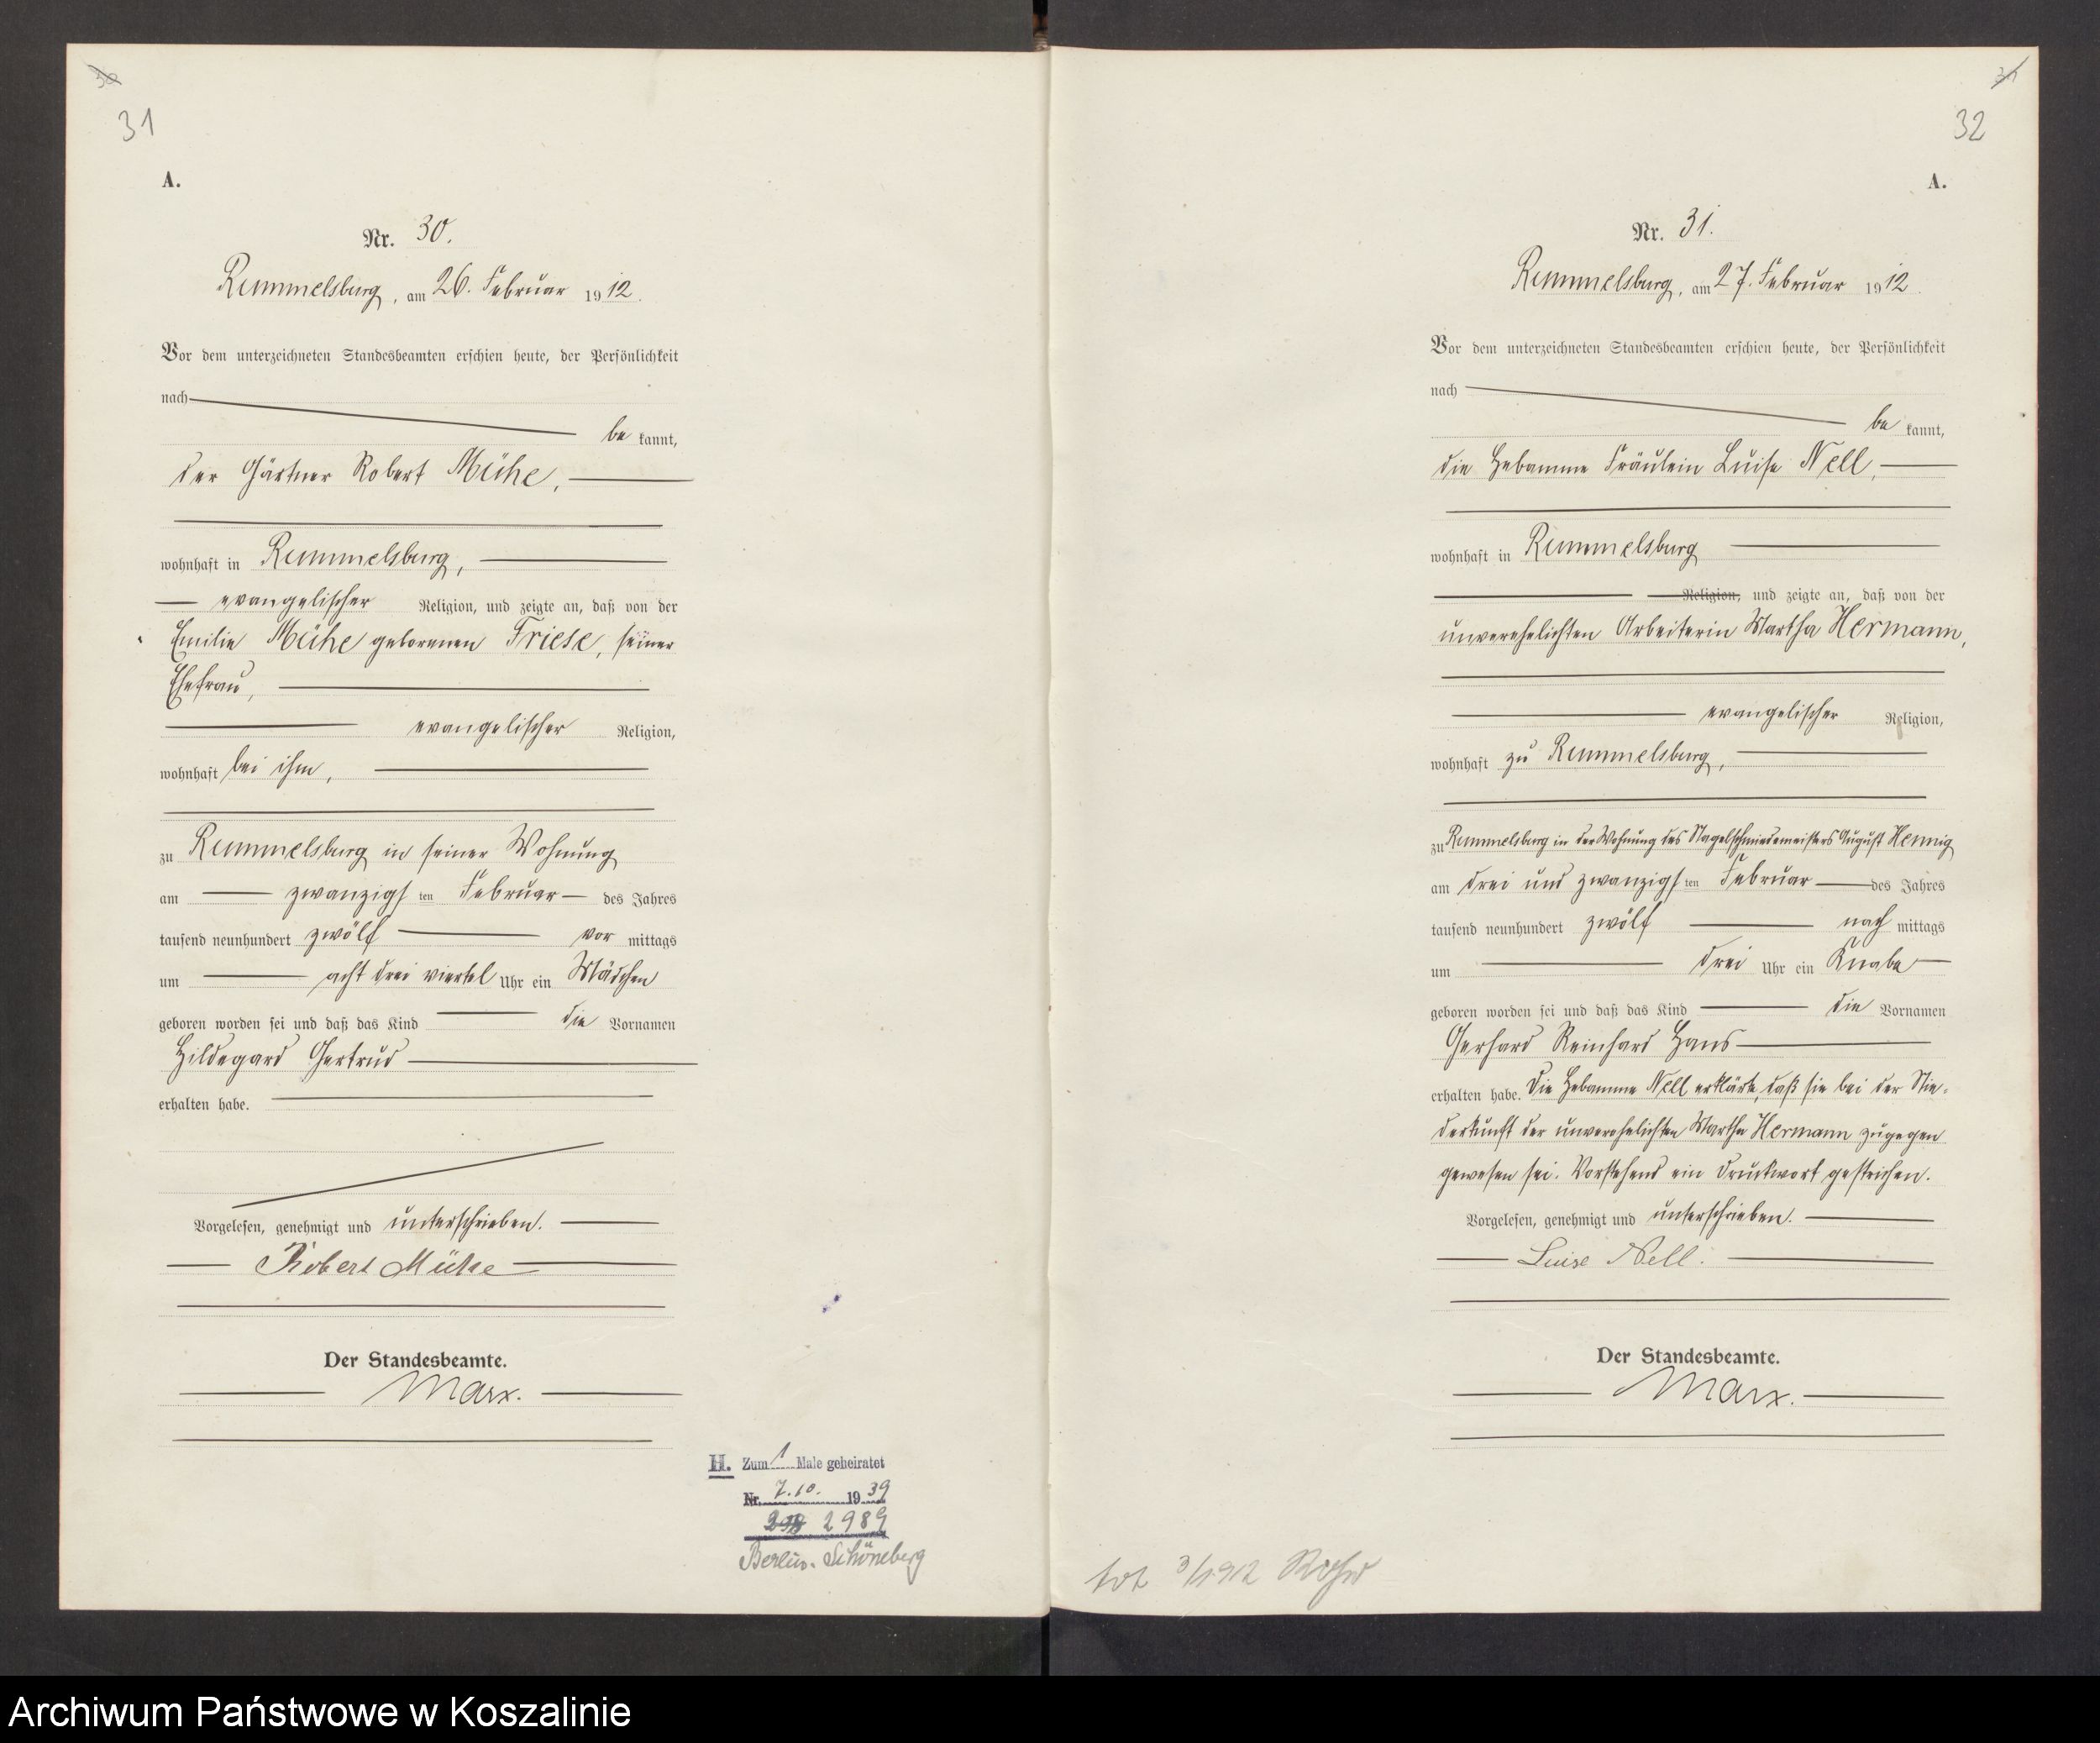 30
31
A.
Nr. 30.
Rummelsburg, am 26. Februar 1912.
Vor dem unterzeichneten Standesbeamten erschien heute, der Persönlichkeit
nach
be kannt,
der Gärtner Robert Mühe,
wohnhaft in Rummelsburg,
evangelischer Religion, und zeigte an, daß von der
Emilie Mühe geborenen Friese, seiner
Ehefrau,
evangelischer Religion,
wohnhaft bei ihm,
zu Rummelsburg in seiner Wohnung
am zwanzigsten Februar des Jahres
tausend neunhundert zwölf vor mittags
um acht drei viertel Uhr ein Mädchen
geboren worden sei und daß das Kind die Vornamen
Hildegard Gertrud
erhalten habe.
Vorgelesen, genehmigt und unterschrieben.
Robert Mühe
Der Standesbeamte.
Marx.
H. Zum 1 Male geheiratet
Nr. 7.10. 1939
2989
Berlin-Schöneberg
31
32
A.
Nr. 31.
Rummelsburg, am 27. Februar 1912.
Vor dem unterzeichneten Standesbeamten erschien heute, der Persönlichkeit
nach
be kannt,
die Hebamme Fräulein Luise Nell,
wohnhaft in Rummelsburg
Religion, und zeigte an, daß von der
unverehelichten Arbeiterin Martha Hermann,
evangelischer Religion,
wohnhaft zu Rummelsburg,
zu Rummelsburg in der Wohnung des Nagelschmiedemeisters August Hennig
am drei und zwanzigsten Februar des Jahres
tausend neunhundert zwölf nach mittags
um drei Uhr ein Knabe
geboren worden sei und daß das Kind die Vornamen
Gerhard Reinhard Hans
erhalten habe. Die Hebamme Nell erklärte, daß sie bei der Nie-
derkunft der unverehelichten Martha Hermann zugegen
gewesen sei. Vorstehend ein Druckwort gestrichen.
Vorgelesen, genehmigt und unterschrieben.
Luise Nell.
Der Standesbeamte.
Marx.
tot 3/1912
Archiwum Państwowe w Koszalinie